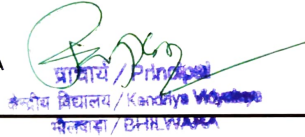 A
प्राचार्य / Principal
केन्द्रीय विद्यालय / Kendriya Vidyalaya
भीलवाड़ा / BHILWARA